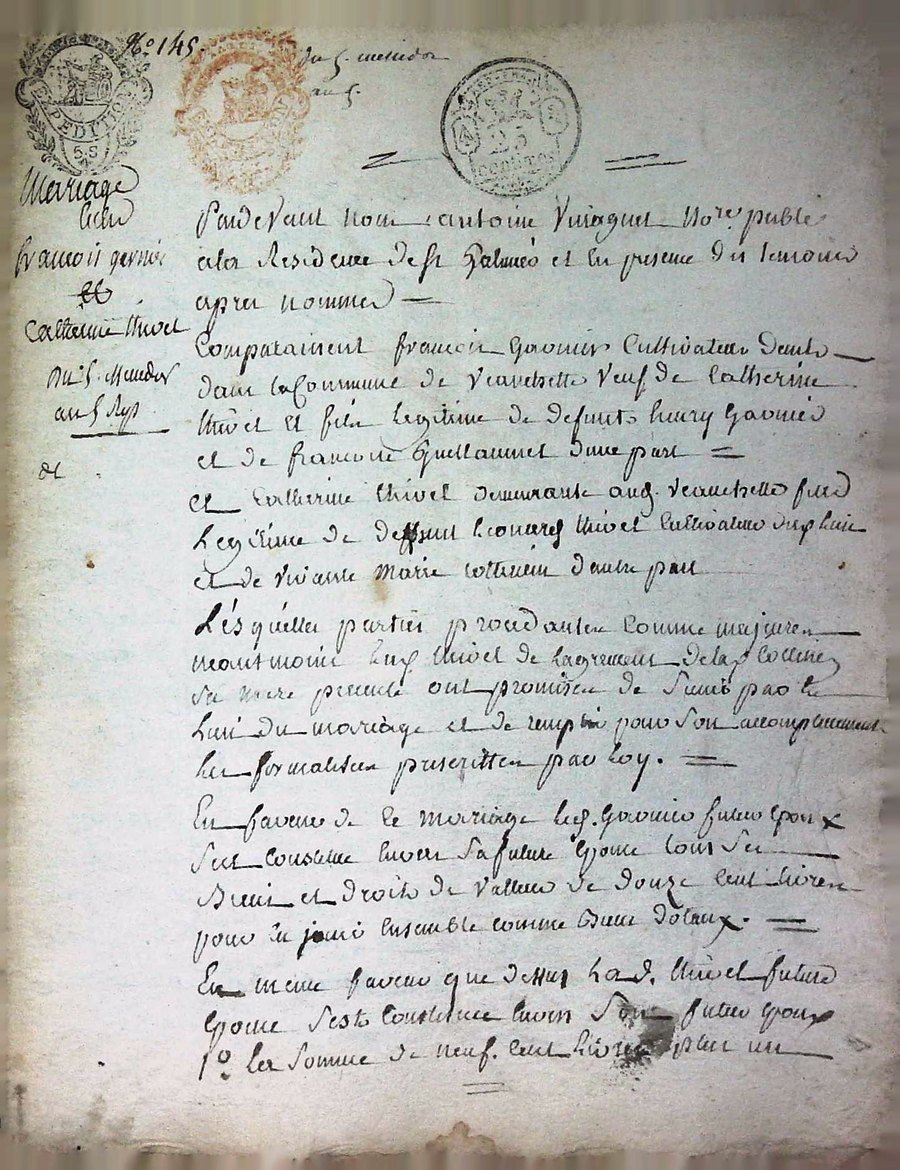 N.° 145.
du 5. messidor
an 5.
EXPEDITION
5.S
25
CENTIMES
Mariage
entre
françois garnier
et
Catherine thivel
Du 5. Messidor
an 5 Rep
et
Pardevant nous antoine no.re public
a la Residence de st Galmié et en presence des temoins
apres nommés
Comparaissent françois Garnier Cultivateur demt.
dans la Commune de Veauchette Veuf de Catherine
thivel et fils legitime de defunts henry Garnier
et de françoise Guillaumet d'une part
et Catherine thivel demeurante aud. Veauchette fille
Legitime de deffunt thivel Cultivateur
et de vivante Marie d'autre part
Lesquelles parties procedantes Comme majeures
lad. thivel de Lagrement de lad.
sa mere presente ont promis de s'unir par le
Lien du mariage et de remplir pour son accomplissement
les formalités prescrittes par Loy.
En faveur de Ce mariage led. Garnier futur Epoux
sest Constitué envers sa future Epouse tous ses
Biens et droits de valleur de douze Cent Livres
pour en jouir Ensemble comme Biens dotaux.
En meme faveur que dessus Lad. thivel future
Epouse s'est Constituée Envers son futur Epoux
1.° la somme de neuf Cent Livres plus un